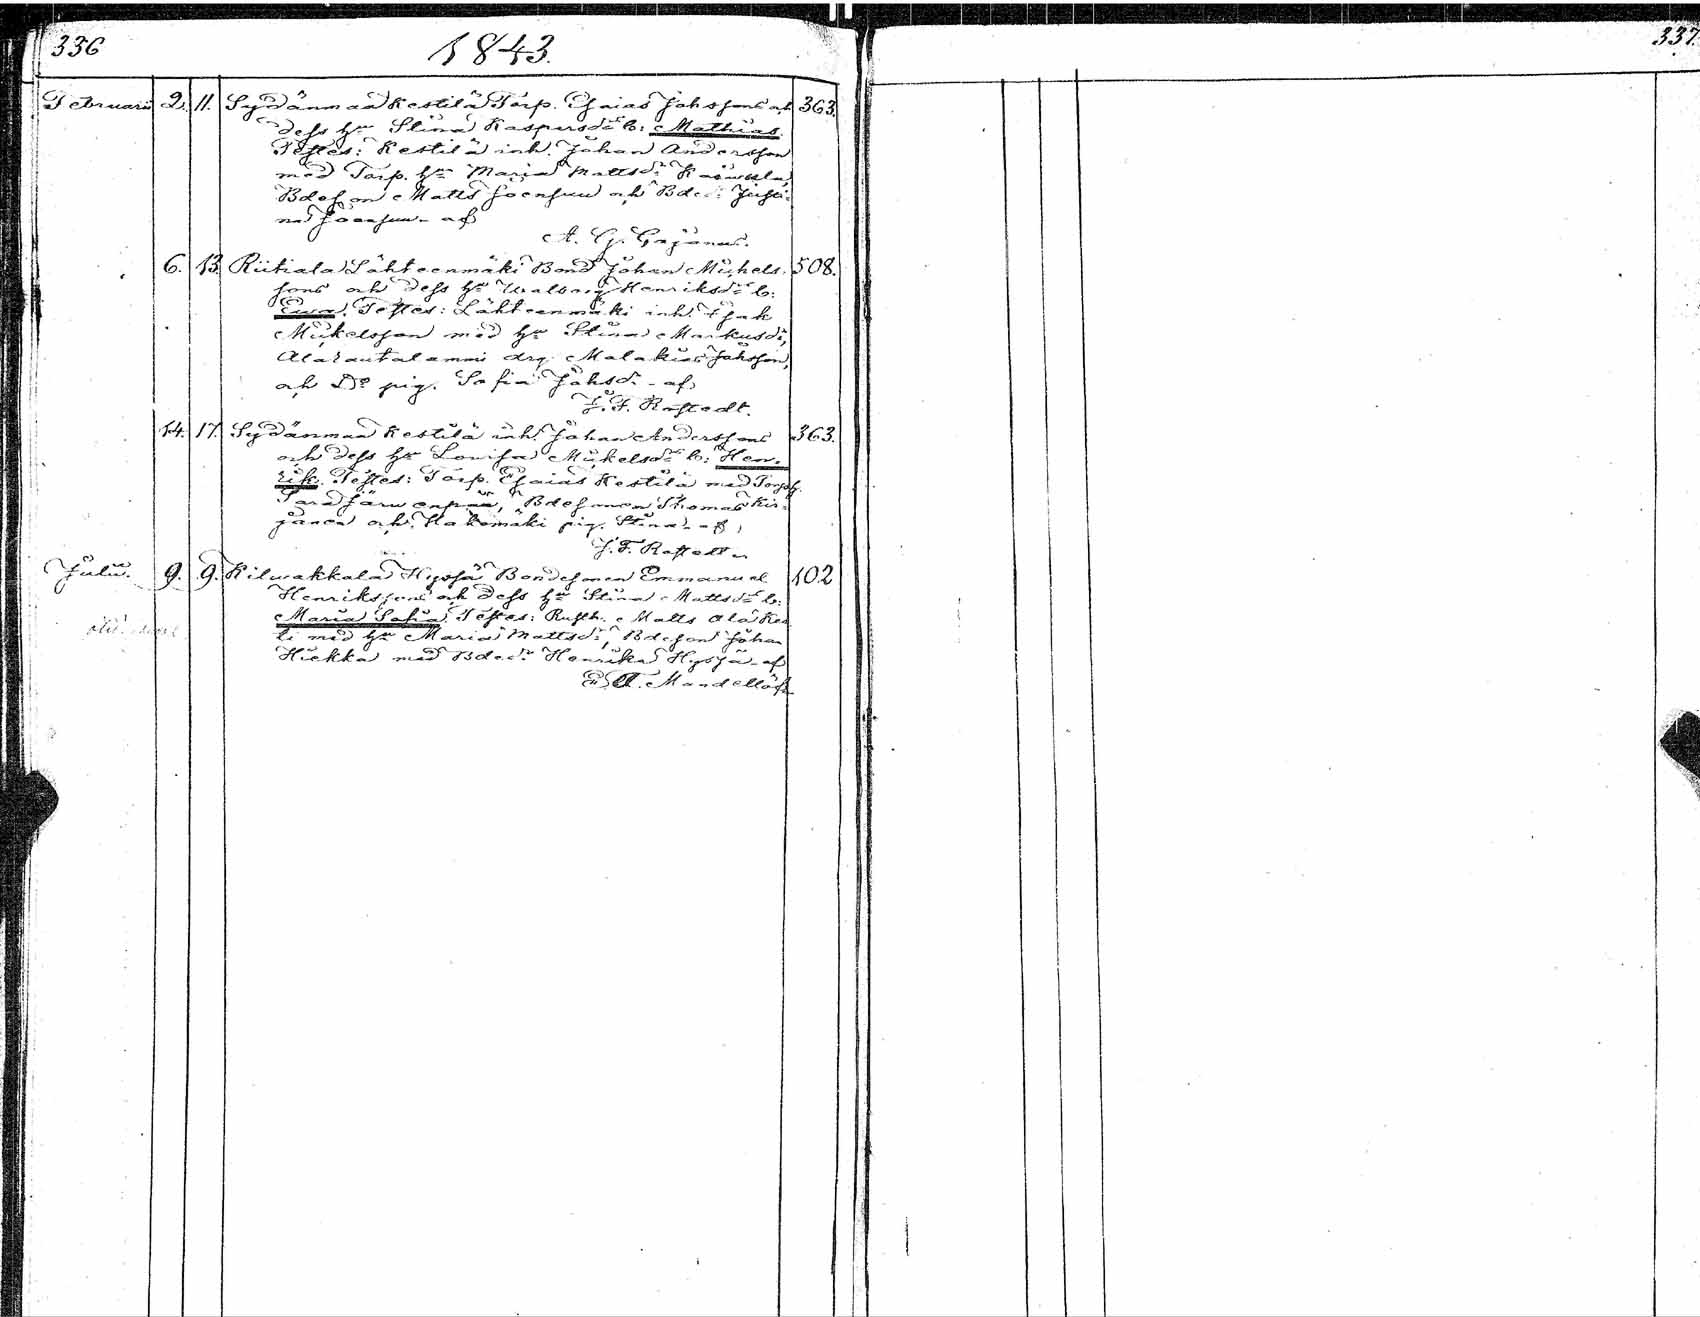 336
1843.
337.
Februarii 2. 11. Sydänmaa Kestilä Torp. Esaias Johssons och 363.
dess hu Stina Kaspersdr b: Mathias.
Testes: Kestilä inh. Johan Andersson
med Torp. hu Maria Mattsdr
Bdeson Matts Joensuu och Bdedr Justi-
na Joensuu - af
A. G. Cajanus.
6. 13. Riitiala Lähteenmäki Bond. Johan Michels- 508.
sons och dess hu Walborg Henriksdr b:
Ewa. Testes: Lähteenmäki inh. Isak
Mickelsson med hu Stina Markusdr,
Alarautalammi drg. Malakias Johsson,
och Do pig. Sofia Johsdr - af
J. F. Rostedt.
14. 17. Sydänmaa Kestilä inh. Johan Anderssons 363.
och dess hu Lovisa Mickelsdr b: Hen-
rik. Testes: Torp. Esaias Kestilä med Torph.
Sara Järwenpää, Bdesonen Thomas
och Hakomäki pig. Stina - af
J. F. Rostedt
Julii. 9. 9. Kilwakkala Hyssä Bondesonen Emmanuel 102
Henrikssons och dess hu Stina Mattsdr b:
Maria Sofia. Testes: Rusth. Matts Ala Kes
ti med hu Maria Mattsdr, Bdeson Johan
Hiekka med Bdedr Henrika Hyssä - af
Mandellöf